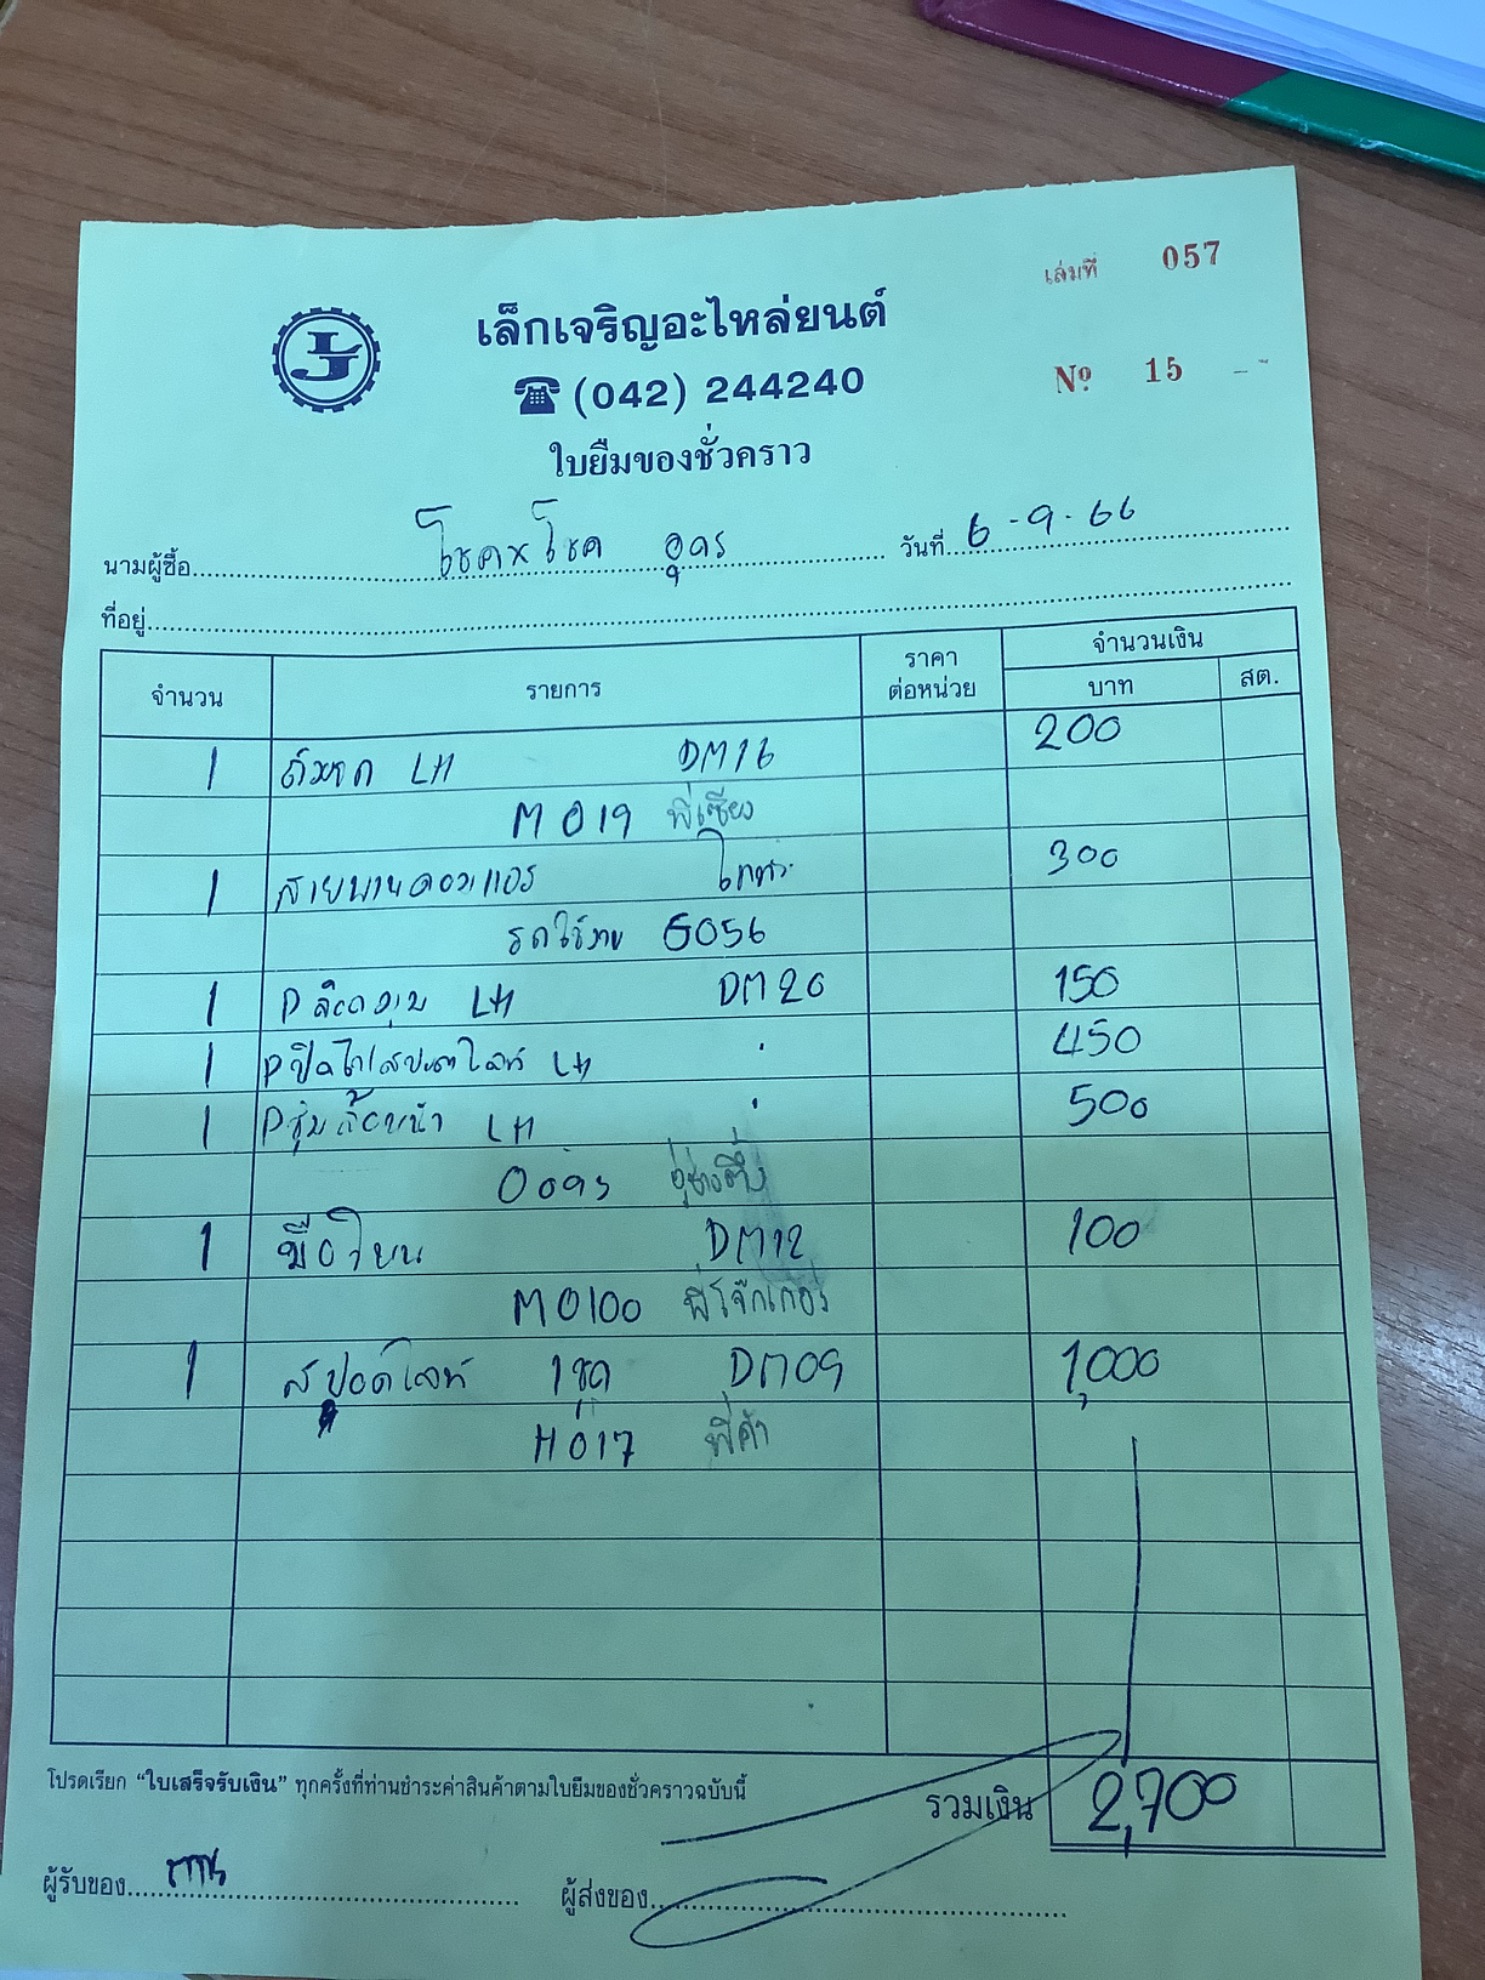 เล่มที่ 057
เล็กเจริญอะไหล่ยนต์
LJ
(042) 244240
Nº 15
ใบยืมของชั่วคราว
นามผู้ซื้อ โชคxโชค อุดร วันที่ 6-9-66
ที่อยู่
จำนวน รายการ ราคาต่อหน่วย จำนวนเงิน
บาท สต.
1 LH DM16 200
M 019 พี่เซียง
1 สายพานคอมแอร์ 300
รถใช้งาน G056
1 P LH DM20 150
1 P LH . 450
1 Pซุ้มล้อหน้า LH . 500
อู่ช่างตึ๋ง
1 มือโยน DM12 100
M0100 พี่โจ๊กเกอร์
1 สปอตไลท์ 1ชุด DM09 1,000
H017 พี่ค้ำ
โปรดเรียก "ใบเสร็จรับเงิน" ทุกครั้งที่ท่านชำระค่าสินค้าตามใบยืมของชั่วคราวฉบับนี้
รวมเงิน 2,700
ผู้รับของ ผู้ส่งของ